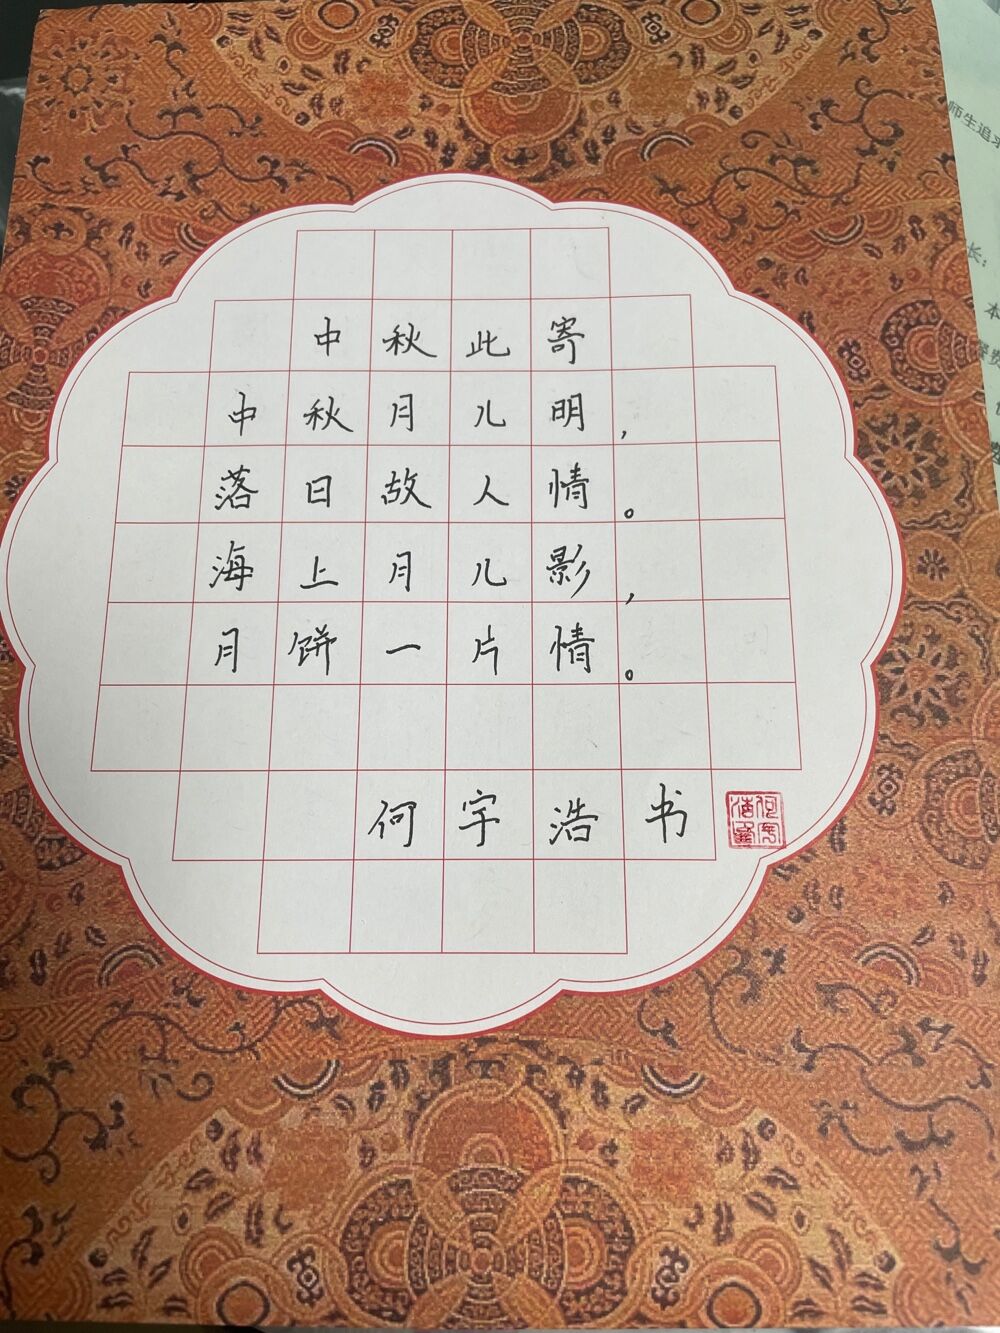 中秋此寄
中秋月儿明，
落日故人情。
海上月儿影，
月饼一片情。
何宇浩书
师生追求
长：